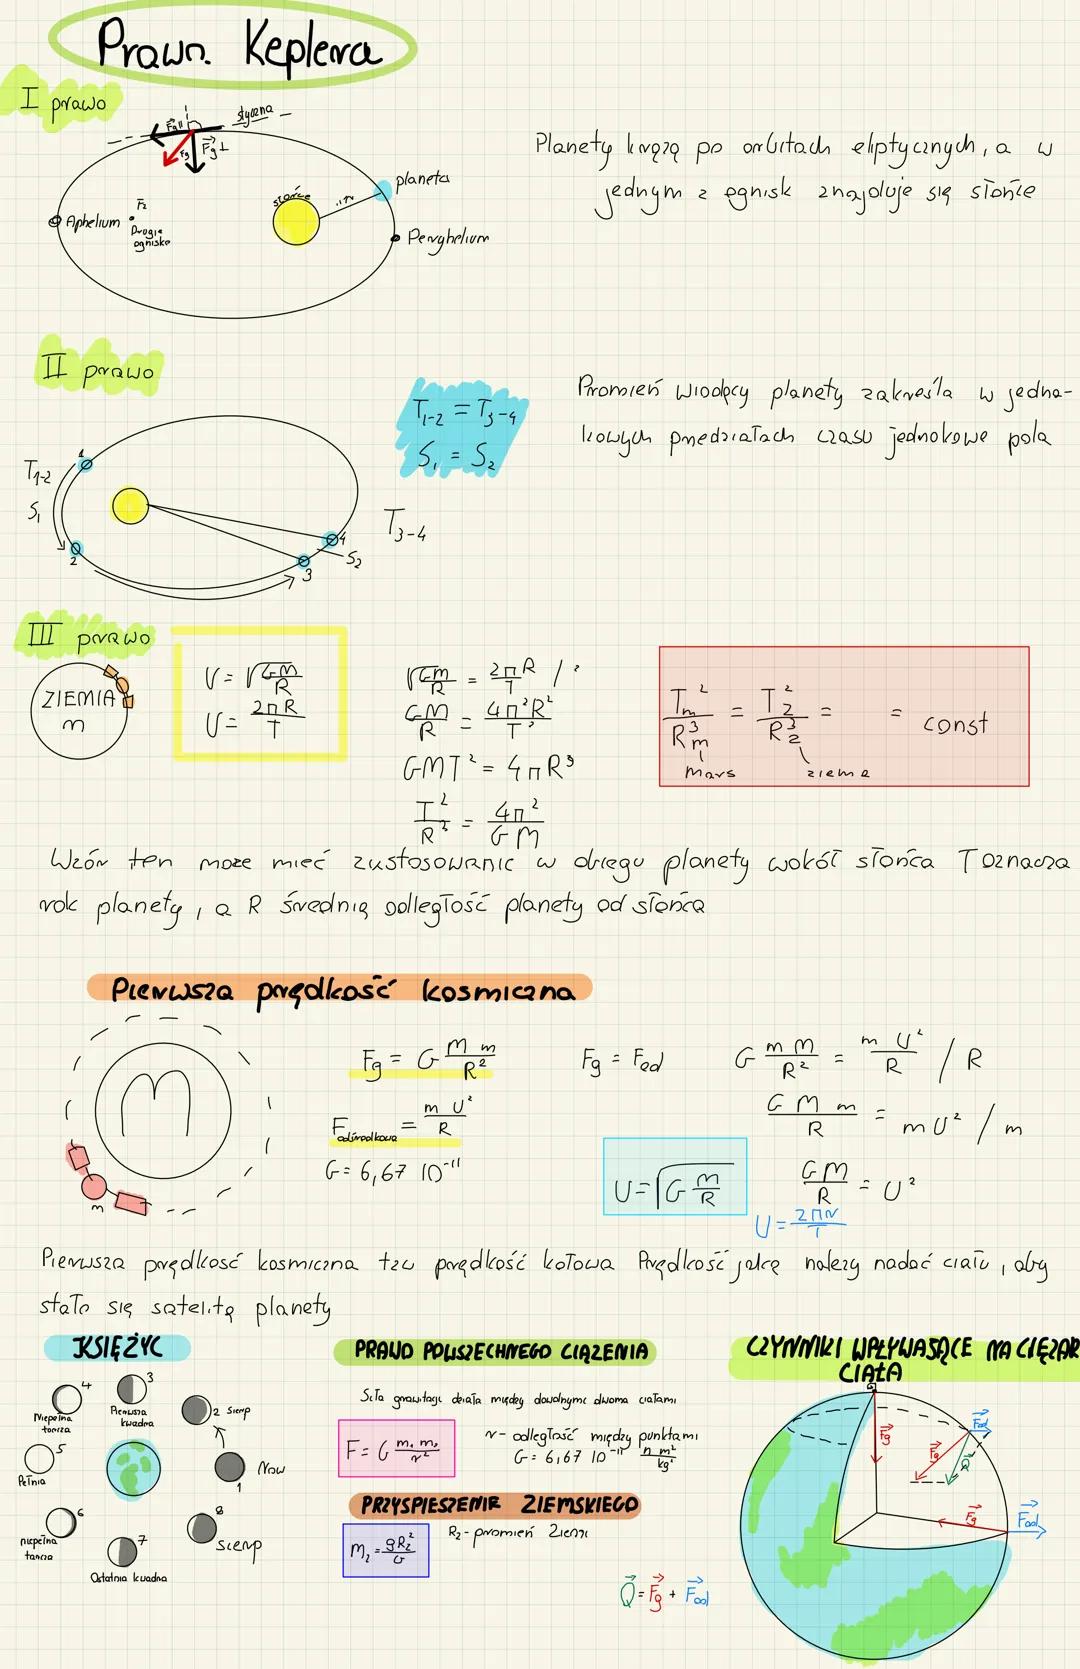 Prawa Keplera
I prawo
styczna
Fg|| Fg⊥
Fg
planeta
słońce
Aphelium
F₂
Drugie
ognisko
Peryhelium
Planety krążą po orbitach eliptycznych, a w
jednym z ognisk znajduje się słońce
II prawo
T₁₋₂ = T₃₋₄
S₁ = S₂
Promień wiodący planety zakreśla w jedna-
kowych przedziałach czasu jednakowe pola
T₁₋₂
S₁
1
2
3
4
S₂
T₃₋₄
III prawo
ZIEMIA
m
υ = √(GM/R)
υ = 2πR/T
√(GM/R) = 2πR/T /²
GM/R = 4π²R²/T²
GMT² = 4πR³
T²/R³ = 4π²/GM
Tm²/Rm³ = T₂²/R₂³ = = const
mars ziemia
Wzór ten może mieć zastosowanie w obiegu planety wokół słońca T oznacza
rok planety, a R średnią odległość planety od słońca
Pierwsza prędkość kosmiczna
M
m
Fg = G Mm/R²
Fodśrodkowa = mυ²/R
G = 6,67 10⁻¹¹
Fg = Fod
G mM/R² = mυ²/R / R
GMm/R = mυ² / m
GM/R = υ²
υ = √(G M/R)
υ = 2πr/T
Pierwsza prędkość kosmiczna tzw prędkość kołowa Prędkość jaką należy nadać ciału, aby
stało się satelitą planety
KSIĘŻYC
4
Niepełna
tarcza
3
Pierwsza
kwadra
2 Sierp
5
Pełnia
Now
1
6
niepełna
tarcza
7
Ostatnia kwadra
8
sierp
PRAWO POWSZECHNEGO CIĄŻENIA
Siła grawitacji działa między dowolnymi dwoma ciałami
F = G m₁m₂/r²
r - odległość między punktami
G = 6,67 10⁻¹¹ n m²/kg²
PRZYSPIESZENIE ZIEMSKIEGO
M₂ = gR₂²/G
R₂ - promień Ziemi
CZYNNIKI WPŁYWAJĄCE NA CIĘŻAR
CIAŁA
Fg
Fod
Fg
Q
Fg
Fod
Q = Fg + Fod